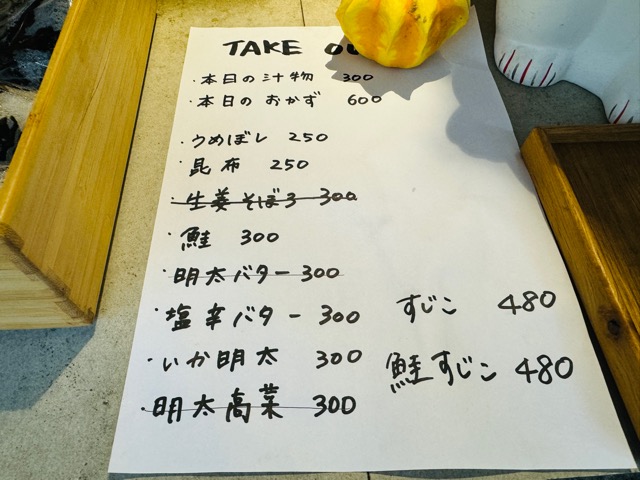 TAKE
・本日の汁物 300
・本日の おかず 600
・うめぼし 250
・昆布 250
・生姜そぼろ 300
・鮭 300
・明太バター 300
・塩辛バター 300
・いか明太 300
・明太高菜 300
すじこ 480
鮭すじこ 480